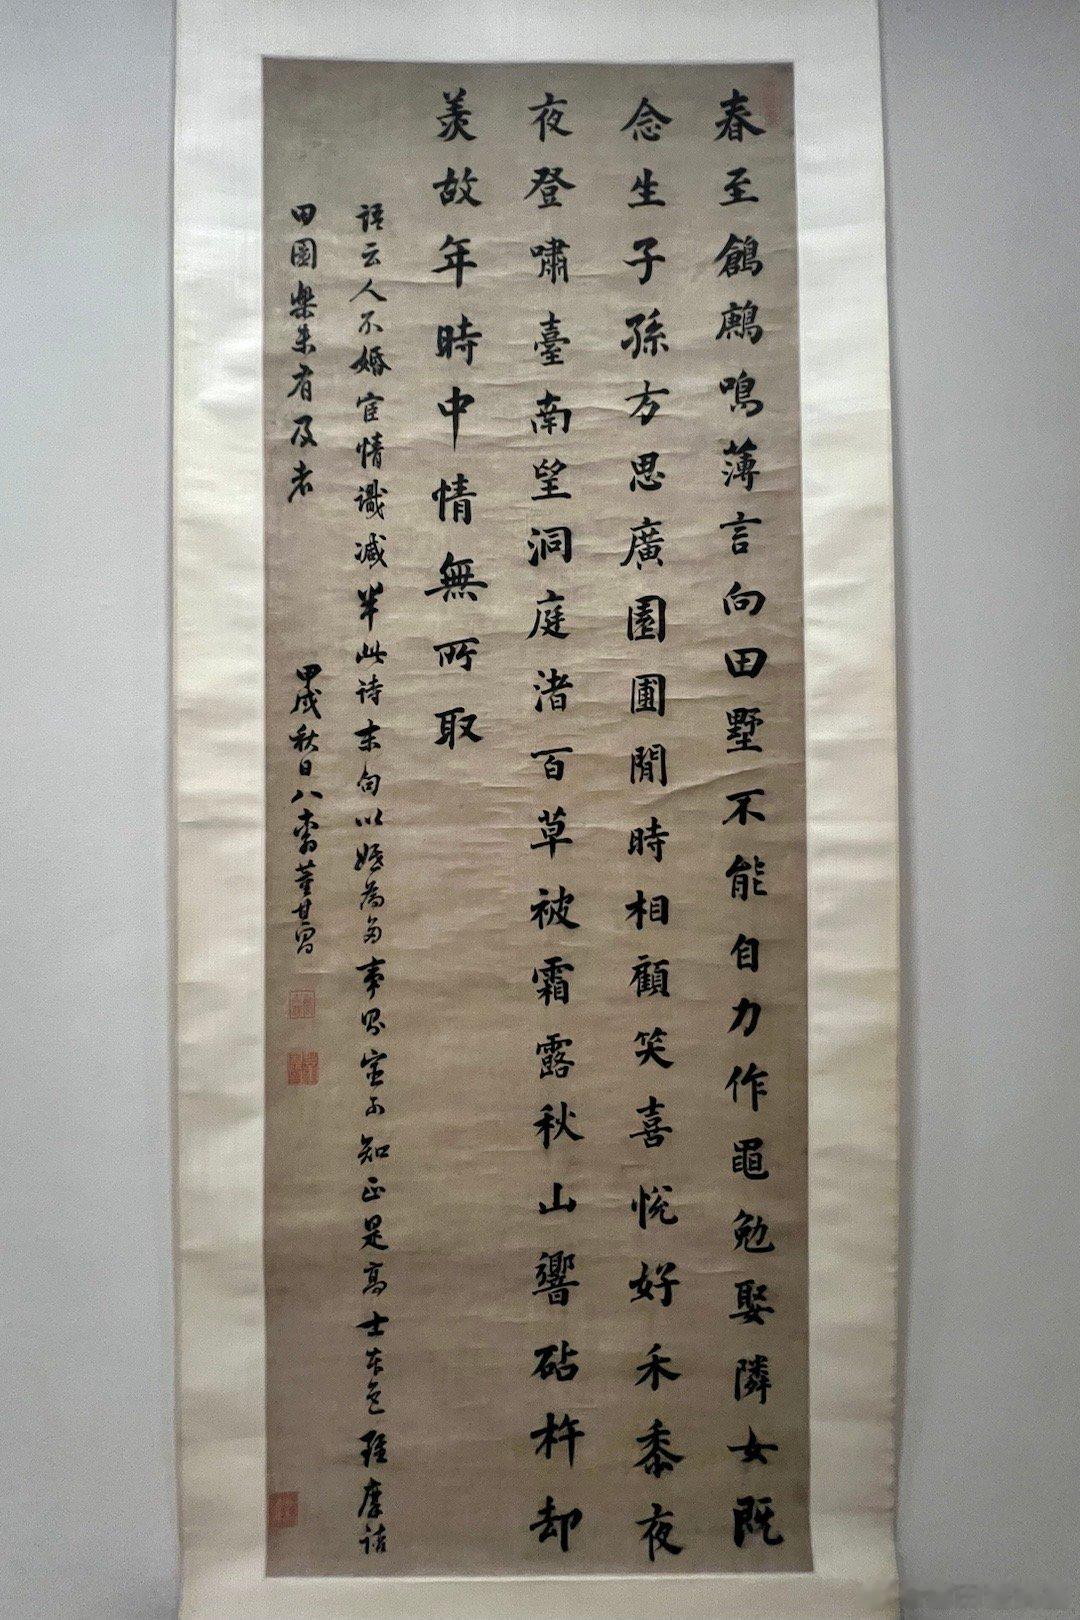 春至鶬鶊鳴薄言向田墅不能自力作黽勉娶隣女既
念生子孫方思廣園圃閒時相顧笑喜悅好禾黍夜
夜登嘯臺南望洞庭渚百草被霜露秋山響砧杵却
羨故年時中情無所取
語云人不婚宦情識减半此詩末句以婚為多事界室不知正是高士本色維摩詰
田園樂未有及者
甲戌秋日八十翁董其昌